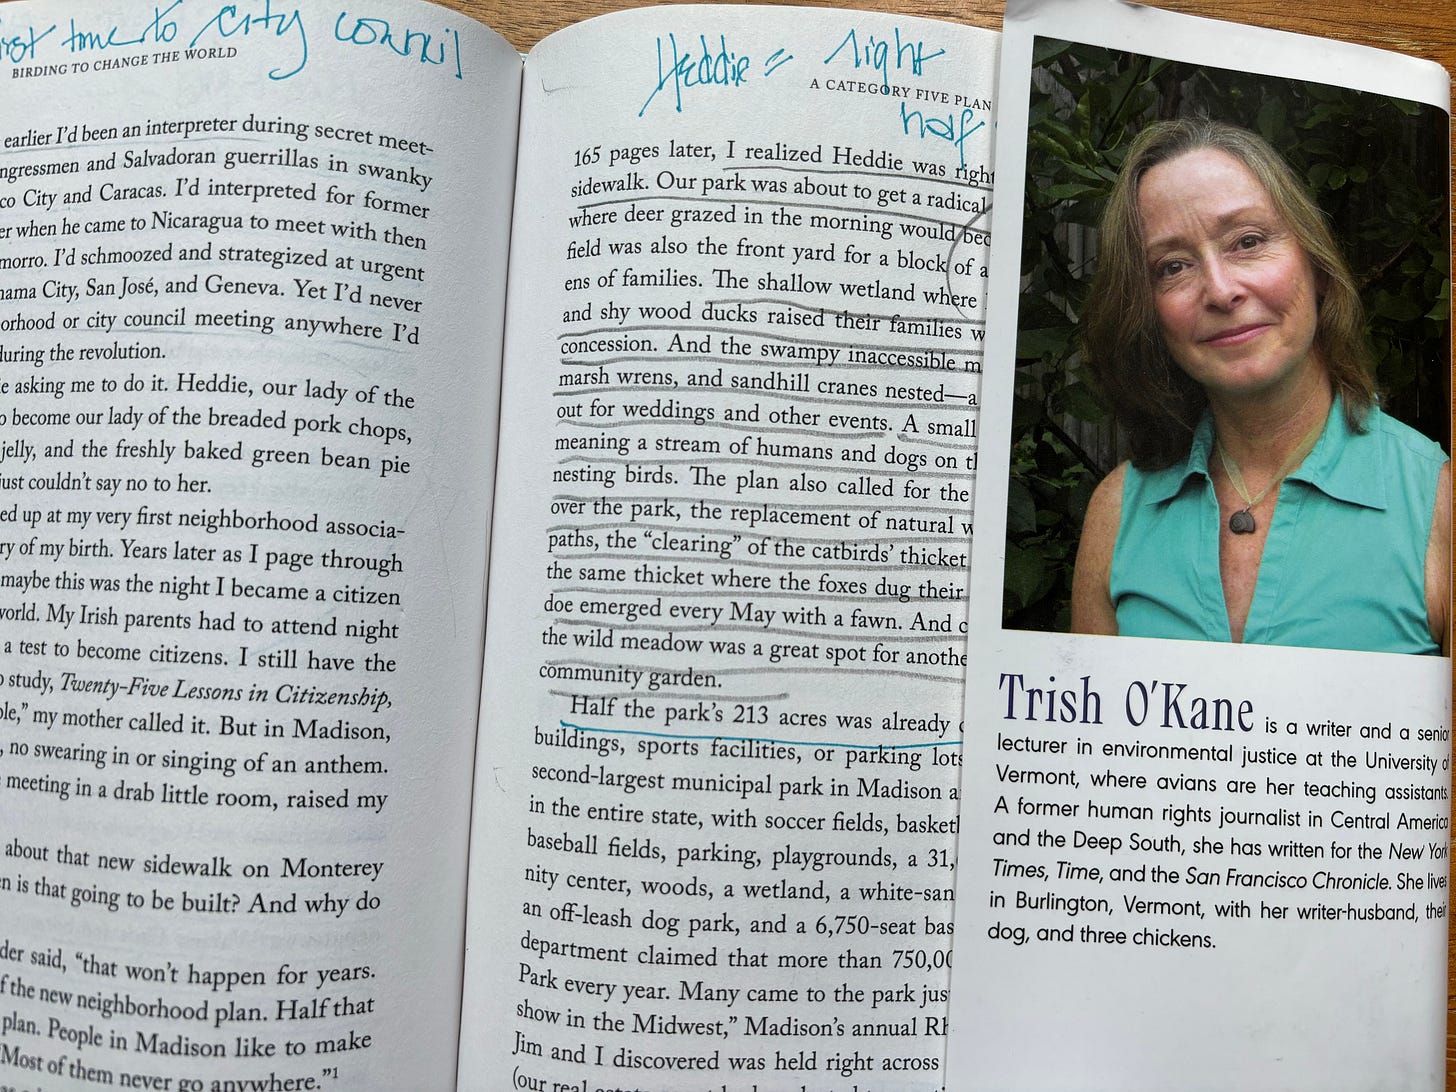 first time to city council
BIRDING TO CHANGE THE WORLD
earlier I'd been an interpreter during secret meet-
ngressmen and Salvadoran guerrillas in swanky
co City and Caracas. I'd interpreted for former
er when he came to Nicaragua to meet with then
morro. I'd schmoozed and strategized at urgent
nama City, San José, and Geneva. Yet I'd never
orhood or city council meeting anywhere I'd
during the revolution.
e asking me to do it. Heddie, our lady of the
o become our lady of the breaded pork chops,
jelly, and the freshly baked green bean pie
just couldn't say no to her.
ed up at my very first neighborhood associa-
ry of my birth. Years later as I page through
maybe this was the night I became a citizen
world. My Irish parents had to attend night
a test to become citizens. I still have the
o study, Twenty-Five Lessons in Citizenship,
ole," my mother called it. But in Madison,
, no swearing in or singing of an anthem.
meeting in a drab little room, raised my
about that new sidewalk on Monterey
n is that going to be built? And why do
der said, "that won't happen for years.
f the new neighborhood plan. Half that
plan. People in Madison like to make
"Most of them never go anywhere."1
Heddie = right
A CATEGORY FIVE PLAN
half
165 pages later, I realized Heddie was right
sidewalk. Our park was about to get a radical
where deer grazed in the morning would bec
field was also the front yard for a block of a
ens of families. The shallow wetland where
and shy wood ducks raised their families w
concession. And the swampy inaccessible m
marsh wrens, and sandhill cranes nested—a
out for weddings and other events. A small
meaning a stream of humans and dogs on th
nesting birds. The plan also called for the
over the park, the replacement of natural w
paths, the "clearing" of the catbirds' thicket
the same thicket where the foxes dug their
doe emerged every May with a fawn. And c
the wild meadow was a great spot for anothe
community garden.
Half the park's 213 acres was already c
buildings, sports facilities, or parking lots
second-largest municipal park in Madison a
in the entire state, with soccer fields, basketl
baseball fields, parking, playgrounds, a 31,
nity center, woods, a wetland, a white-san
an off-leash dog park, and a 6,750-seat bas
department claimed that more than 750,00
Park every year. Many came to the park jus
show in the Midwest," Madison's annual Rh
Jim and I discovered was held right across
(our real
Trish O'Kane is a writer and a senior
lecturer in environmental justice at the University of
Vermont, where avians are her teaching assistants.
A former human rights journalist in Central America
and the Deep South, she has written for the New York
Times, Time, and the San Francisco Chronicle. She lives
in Burlington, Vermont, with her writer-husband, their
dog, and three chickens.